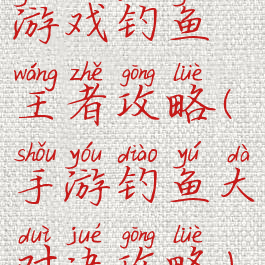 游戏钓鱼
wáng zhě gōng lüè
王者攻略(
shǒu yóu diào yú dà
手游钓鱼大
duì jué gōng lüè
对决攻略)